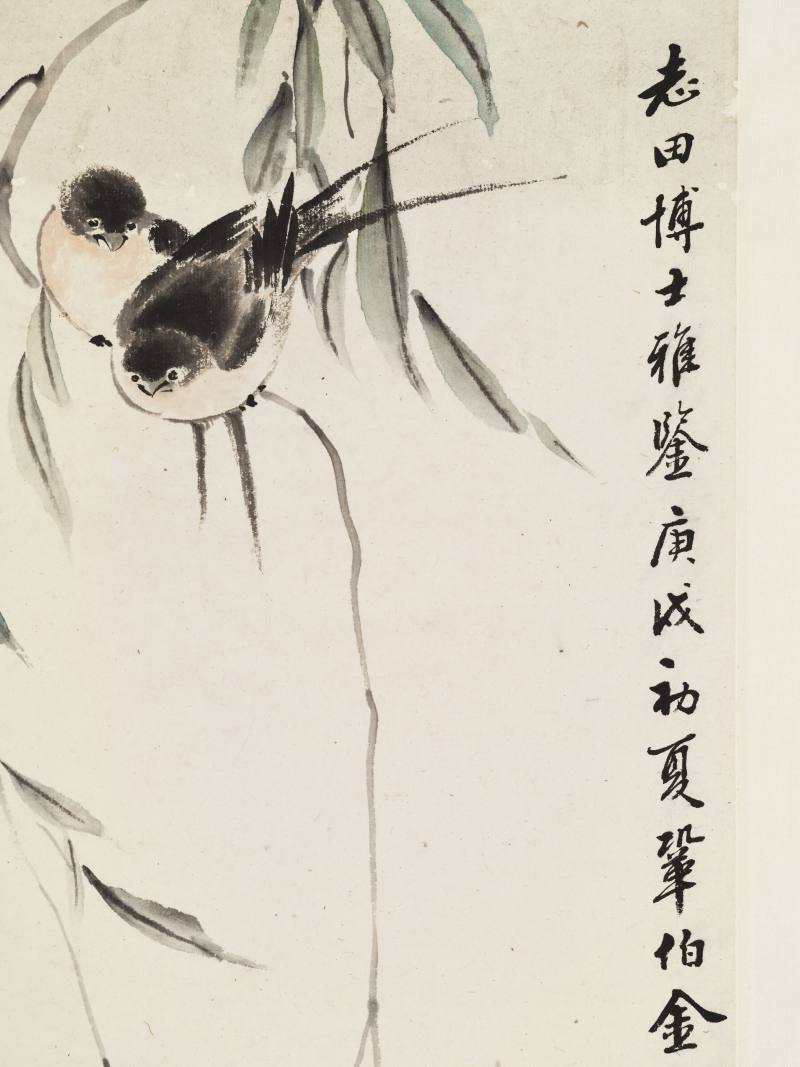 志田博士雅鑒庚戌初夏鞏伯金